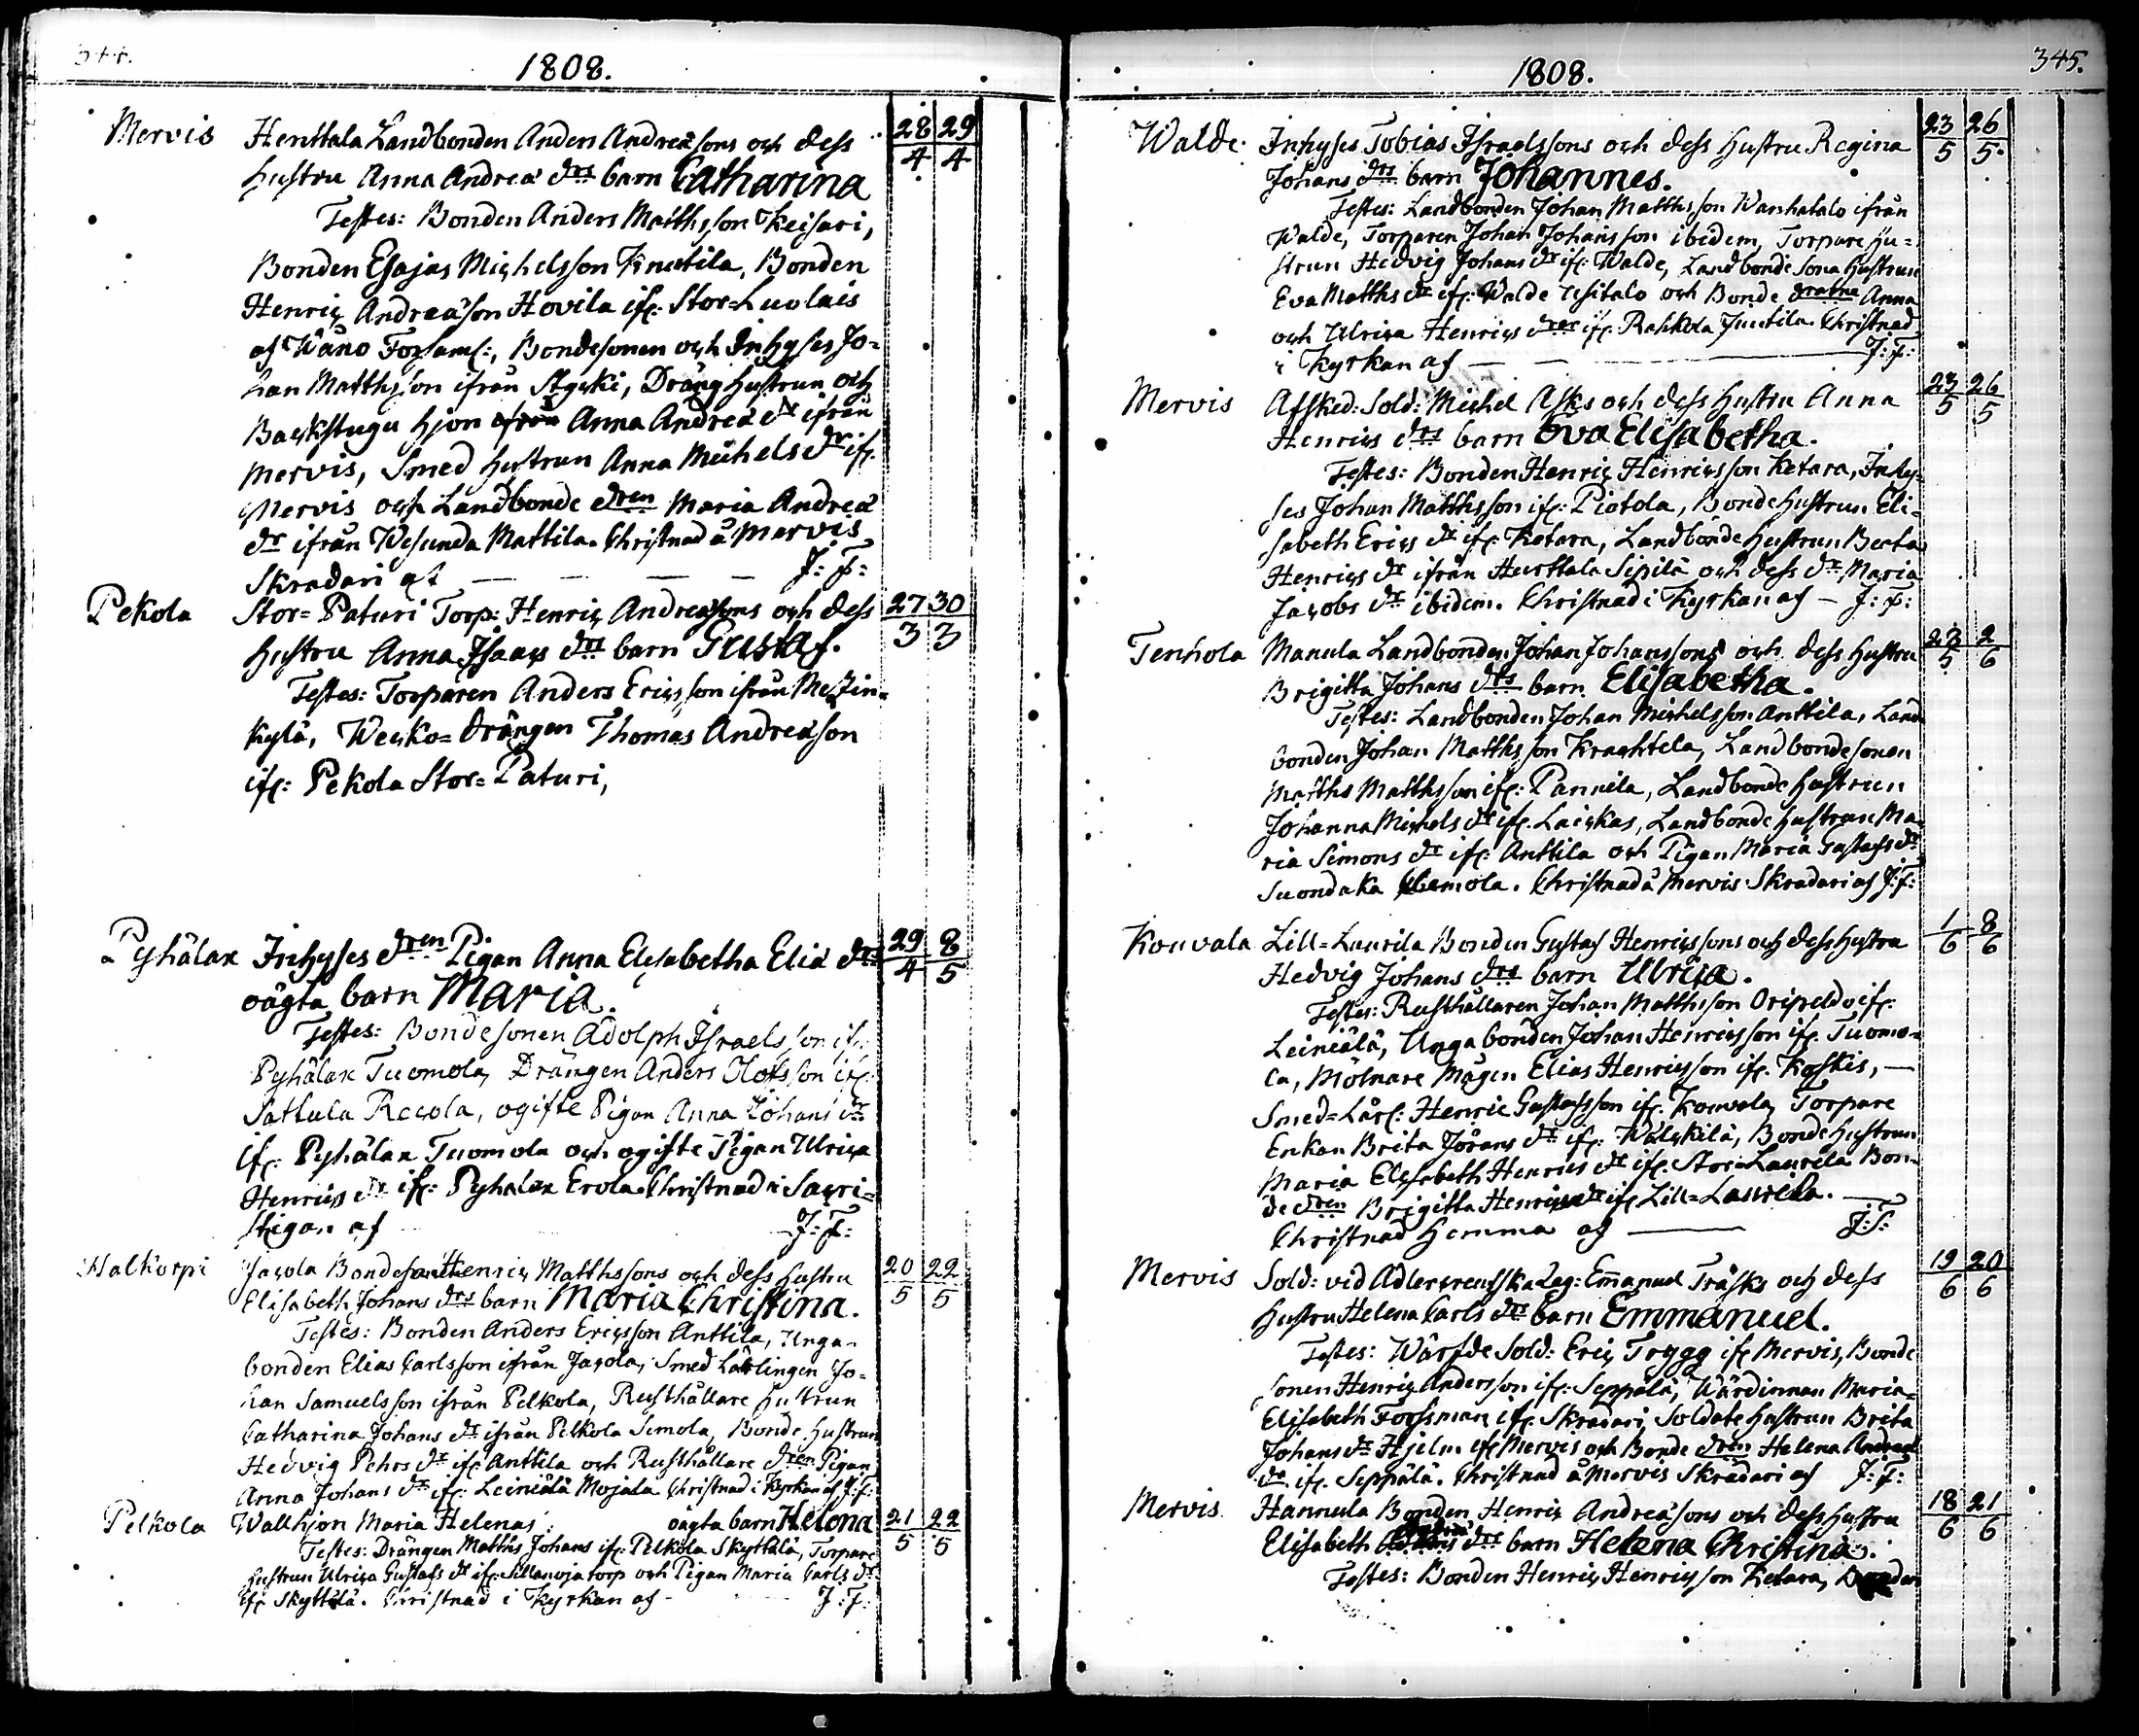 344.
1808.
Mervis Henttala Landbonden Anders Andreæsons och dess 28/4 29/4
hustru Anna Andreæ drs barn Catharina
Testes: Bonden Anders Matthsson Keisari,
Bonden Esajas Michelsson Knutila, Bonden
Henric Andreæson Hovila ifr: Stor=Luolais
af Wåno Församl:, Bondesonen och Inhyses Jo=
han Matthsson ifrån, Dräng hustrun och
Backstugu hjon Anna Andreæ dr ifrån
Mervis, Smed hustrun Anna Michels dr ifr.
Mervis och Landbonde dren Maria Andreæ
dr ifrån Wesunda Mattila. Christnad å Mervis
Skradari af — — — — J: F:
Pekola Stor=Paturi Torp: Henric Andreæsons och dess 27/3 30/3
hustru Anna Isaacs drs barn Gustaf.
Testes: Torparen Anders Ericsson ifrån
kylä, Wecko=Drängen Thomas Andreæson
ifr: Pekola Stor=Paturi,
Pyhälax Inhyses dren Pigan Anna Elisabetha Eliæ drs 29/4 8/5
oägta barn Maria.
Testes: Bondesonen Adolph Israelsson ifr.
Pyhälax Tuomola, Drängen Anders Olofsson ifr:
Sattula Recola, ogifte Pigan Anna Johans dr
ifr: Pyhälax Tuomola och ogifte Pigan Ulrica
Henrics dr ifr: Pyhälax Erola. Christnad i Sacri=
stigan af — J: F:
Halkorpi Jacola Bondesonen Henric Matthssons och dess hustru 20/5 22/5
Elisabeth Johans drs barn Maria Christina.
Testes: Bonden Anders Ericsson Anttila, Unga=
bonden Elias Carlsson ifrån Jacola, Smed Lärlingen Jo=
han Samuelsson ifrån Pelkola, Rusthållare hustrun
Catharina Johans dr ifrån Pelkola Simola, Bonde hustrun
Hedvig Pehrs dr ifr: Anttila och Rusthållare dren Pigan
Anna Johans dr ifr: Leiniälä Mojala. Christnad i Kyrkan af J: F:
Pelkola Wallhjon Maria Helenas oägta barn Helena 21/5 22/5
Testes: Drängen Matths Johans ifr: Pelkola Skyttälä, Torpare
hustrun Ulrica Gustafs dr ifr: torp och Pigan Maria Carls dr
ifr: Skyttälä. Christnad i Kyrkan af — J: F:
345.
1808.
Walde. Inhyses Tobias Israelssons och dess hustru Regina 23/5 26/5.
Johans drs barn Johannes.
Testes: Landbonden Johan Matthsson Wanhatalo ifrån
Walde, Torparen Johan Johansson ibidem, Torpare hu=
strun Hedvig Johans dr ifr: Walde, Landbonde sona hustrun
Eva Matths dr ifr: Walde Ysitalo och Bonde Anna
och Ulrica Henrics drar ifr: Rahkola Juntila. Christnad
i Kyrkan af — — — J: F:
Mervis Afsked: Sold: Michel Asks och dess hustru Anna 23/5 26/5
Henrics drs barn Eva Elisabetha.
Testes: Bonden Henric Henricsson Ketara, Inhy=
ses Johan Matthsson ifr: Piotola, Bonde hustrun Eli=
sabeth Erics dr ifr: Ketara, Landbonde hustrun Beata
Henrics dr ifrån Hurttala Sipilä och dess dr Maria
Jacobs dr ibidem. Christnad i Kyrkan af — J: F:
Tenhola Manula Landbonden Johan Johanssons och dess hustru 28/5 2/6
Brigitta Johans drs barn Elisabetha.
Testes: Landbonden Johan Michelsson Anttila, Land
bonden Johan Matthsson Krachtela, Landbondesonen
Matths Matthsson ifr: Pannila, Landbonde hustrun
Johanna Michels dr ifr: Laickas, Landbonde hustrun Ma=
ria Simons dr ifr: Anttila och Pigan Maria Gustafs dr
Suondaka. Christnad å Mervis Skradari af J: F:
Kouvala Lill=Laurila Bonden Gustaf Henricssons och dess hustru 1/6 8/6
Hedvig Johans drs barn Ulrica.
Testes: Rusthållaren Johan Matthsson ifr:
Leiniälä, Unga bonden Johan Henricsson ifr: Tuomo=
la, Mölnare Mågen Elias Henricsson ifr: Koskis, —
Smed=Lärl: Henric Gustafsson ifr: Kouvola, Torpare
Enkan Brita Jörans dr ifr: Wälckilä, Bonde hustrun
Maria Elisabeth Henrics dr ifr: Stor=Laurila Bon=
de dren Brigitta Henrics dr ifr: Lill=Laurila. —
Christnad hemma af — J: F:
Mervis Sold: vid Adlercreutzska Reg: Emanuel Träsks och dess 19/6 20/6
hustru Helena Carls drs barn Emmanuel.
Testes: Wärfde Sold: Eric Trygg ifr Mervis, Bonde
sonen Henric Andersson ifr: Seppälä, Wärdinnan Maria
Elisabeth Forssman ifr: Skradari, Soldate hustrun Brita
Johans dr Hjelm ifr Mervis och Bonde dren Helena Andreæ
dr ifr. Seppälä. Christnad å Mervis Skradari af J: F:
Mervis Hannula Bonden Henric Andreæsons och dess hustru 18/6 21/6
Elisabeth drs barn Helena Christina.
Testes: Bonden Henric Henricsson Ketara,